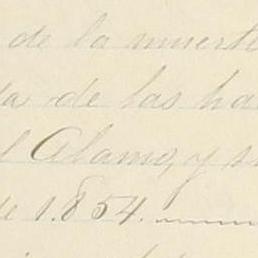 de la muerte
da de las ha
l Alamo, y s
de 1.854.